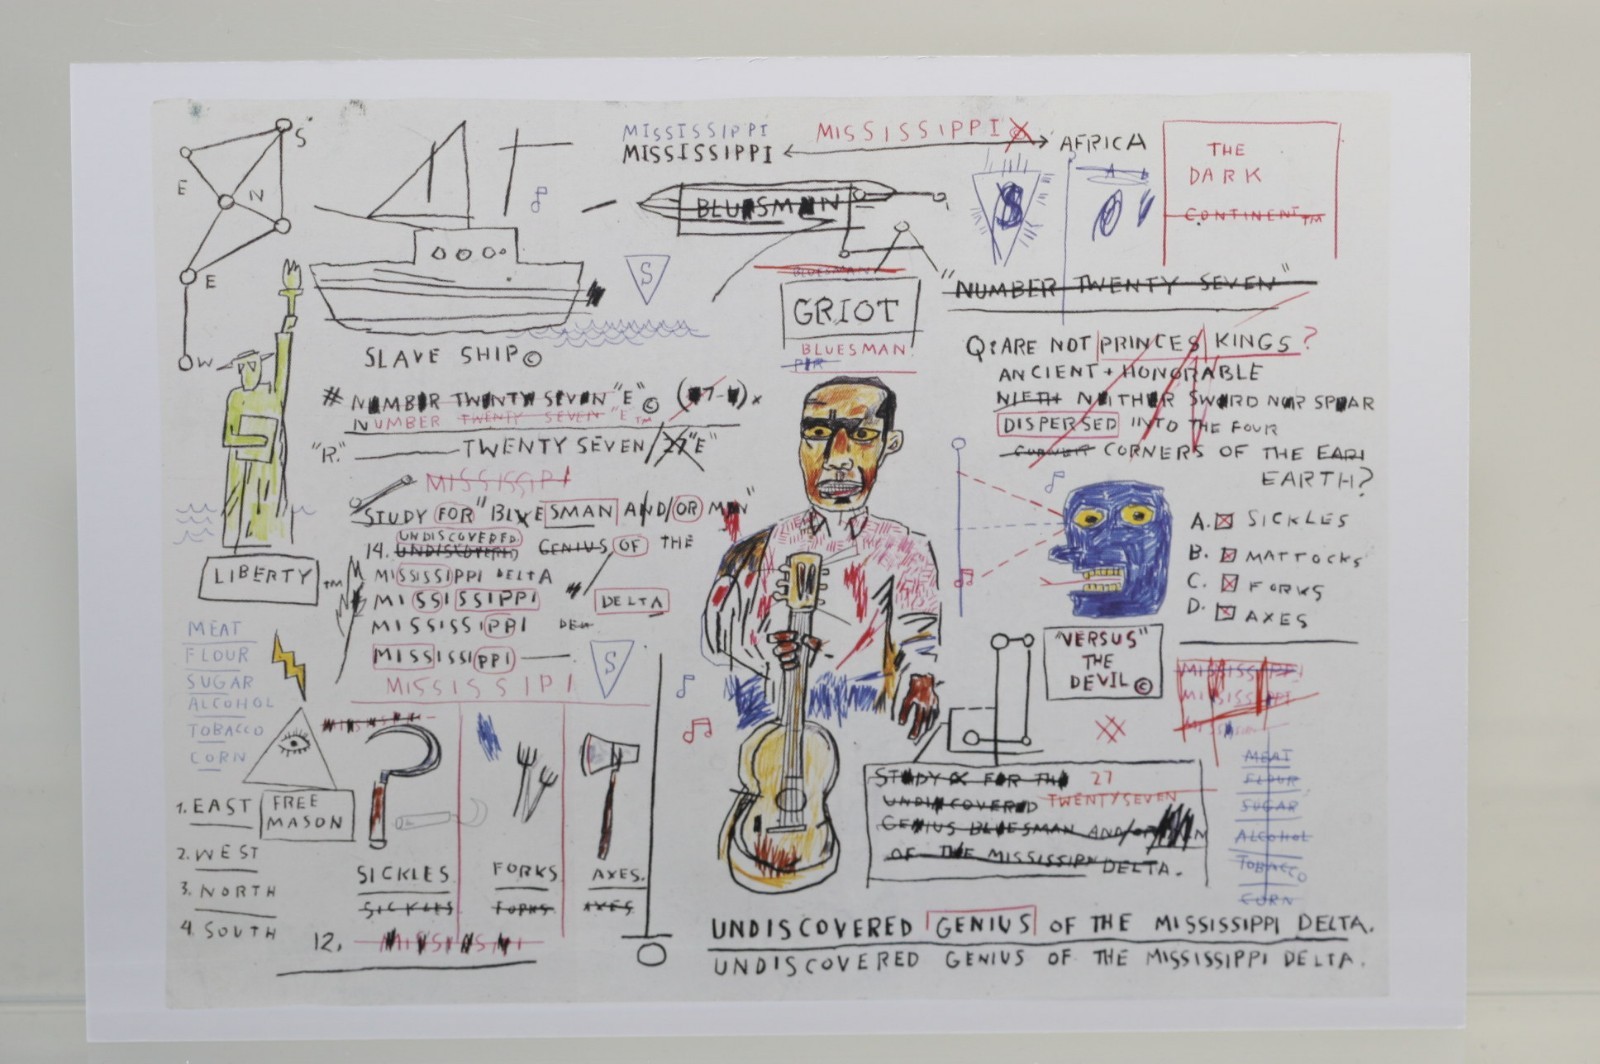 S
E
N
E
W
MISSISSIPPI
MISSISSIPPI
MISSISSIPPI
AFRICA
THE
DARK
CONTINENT TM
BLUESMAN
S
S
BLUESMAN
GRIOT
BLUESMAN
"NUMBER TWENTY SEVEN"
SLAVE SHIP ©
# NUMBER TWENTY SEVEN "E" ©
NUMBER TWENTY SEVEN "E" TM
"R." TWENTY SEVEN/27 "E"
MISSISSIPI
STUDY FOR "BLUESMAN AND/OR MAN"
UNDISCOVERED
14. UNDISCOVERED GENIUS OF THE
MISSISSIPPI DELTA
MISSISSIPPI DELTA
MISSISSIPPI DEL
MISSISSIPPI
MISSISSIPI
S
LIBERTY TM
MEAT
FLOUR
SUGAR
ALCOHOL
TOBACCO
CORN
FREE
MASON
1. EAST
2. WEST
3. NORTH
4. SOUTH
SICKLES
SICKLES
FORKS
FORKS
AXES.
AXES
12.
Q: ARE NOT PRINCES KINGS?
ANCIENT + HONORABLE
NIETH NEITHER SWORD NOR SPEAR
DISPERSED INTO THE FOUR
CORNER CORNERS OF THE EARI
EARTH?
A. SICKLES
B. MATTOCKS
C. FORKS
D. AXES
"VERSUS"
THE
DEVIL ©
MISSISSIPPI
MISSISSIPPI
MEAT
FLOUR
SUGAR
ALCOHOL
TOBACCO
CORN
STUDY FOR THE 27
UNDISCOVERED TWENTYSEVEN
GENIUS BLUESMAN AND/OR MAN
OF THE MISSISSIPPI DELTA.
UNDISCOVERED GENIUS OF THE MISSISSIPPI DELTA.
UNDISCOVERED GENIUS OF THE MISSISSIPPI DELTA.